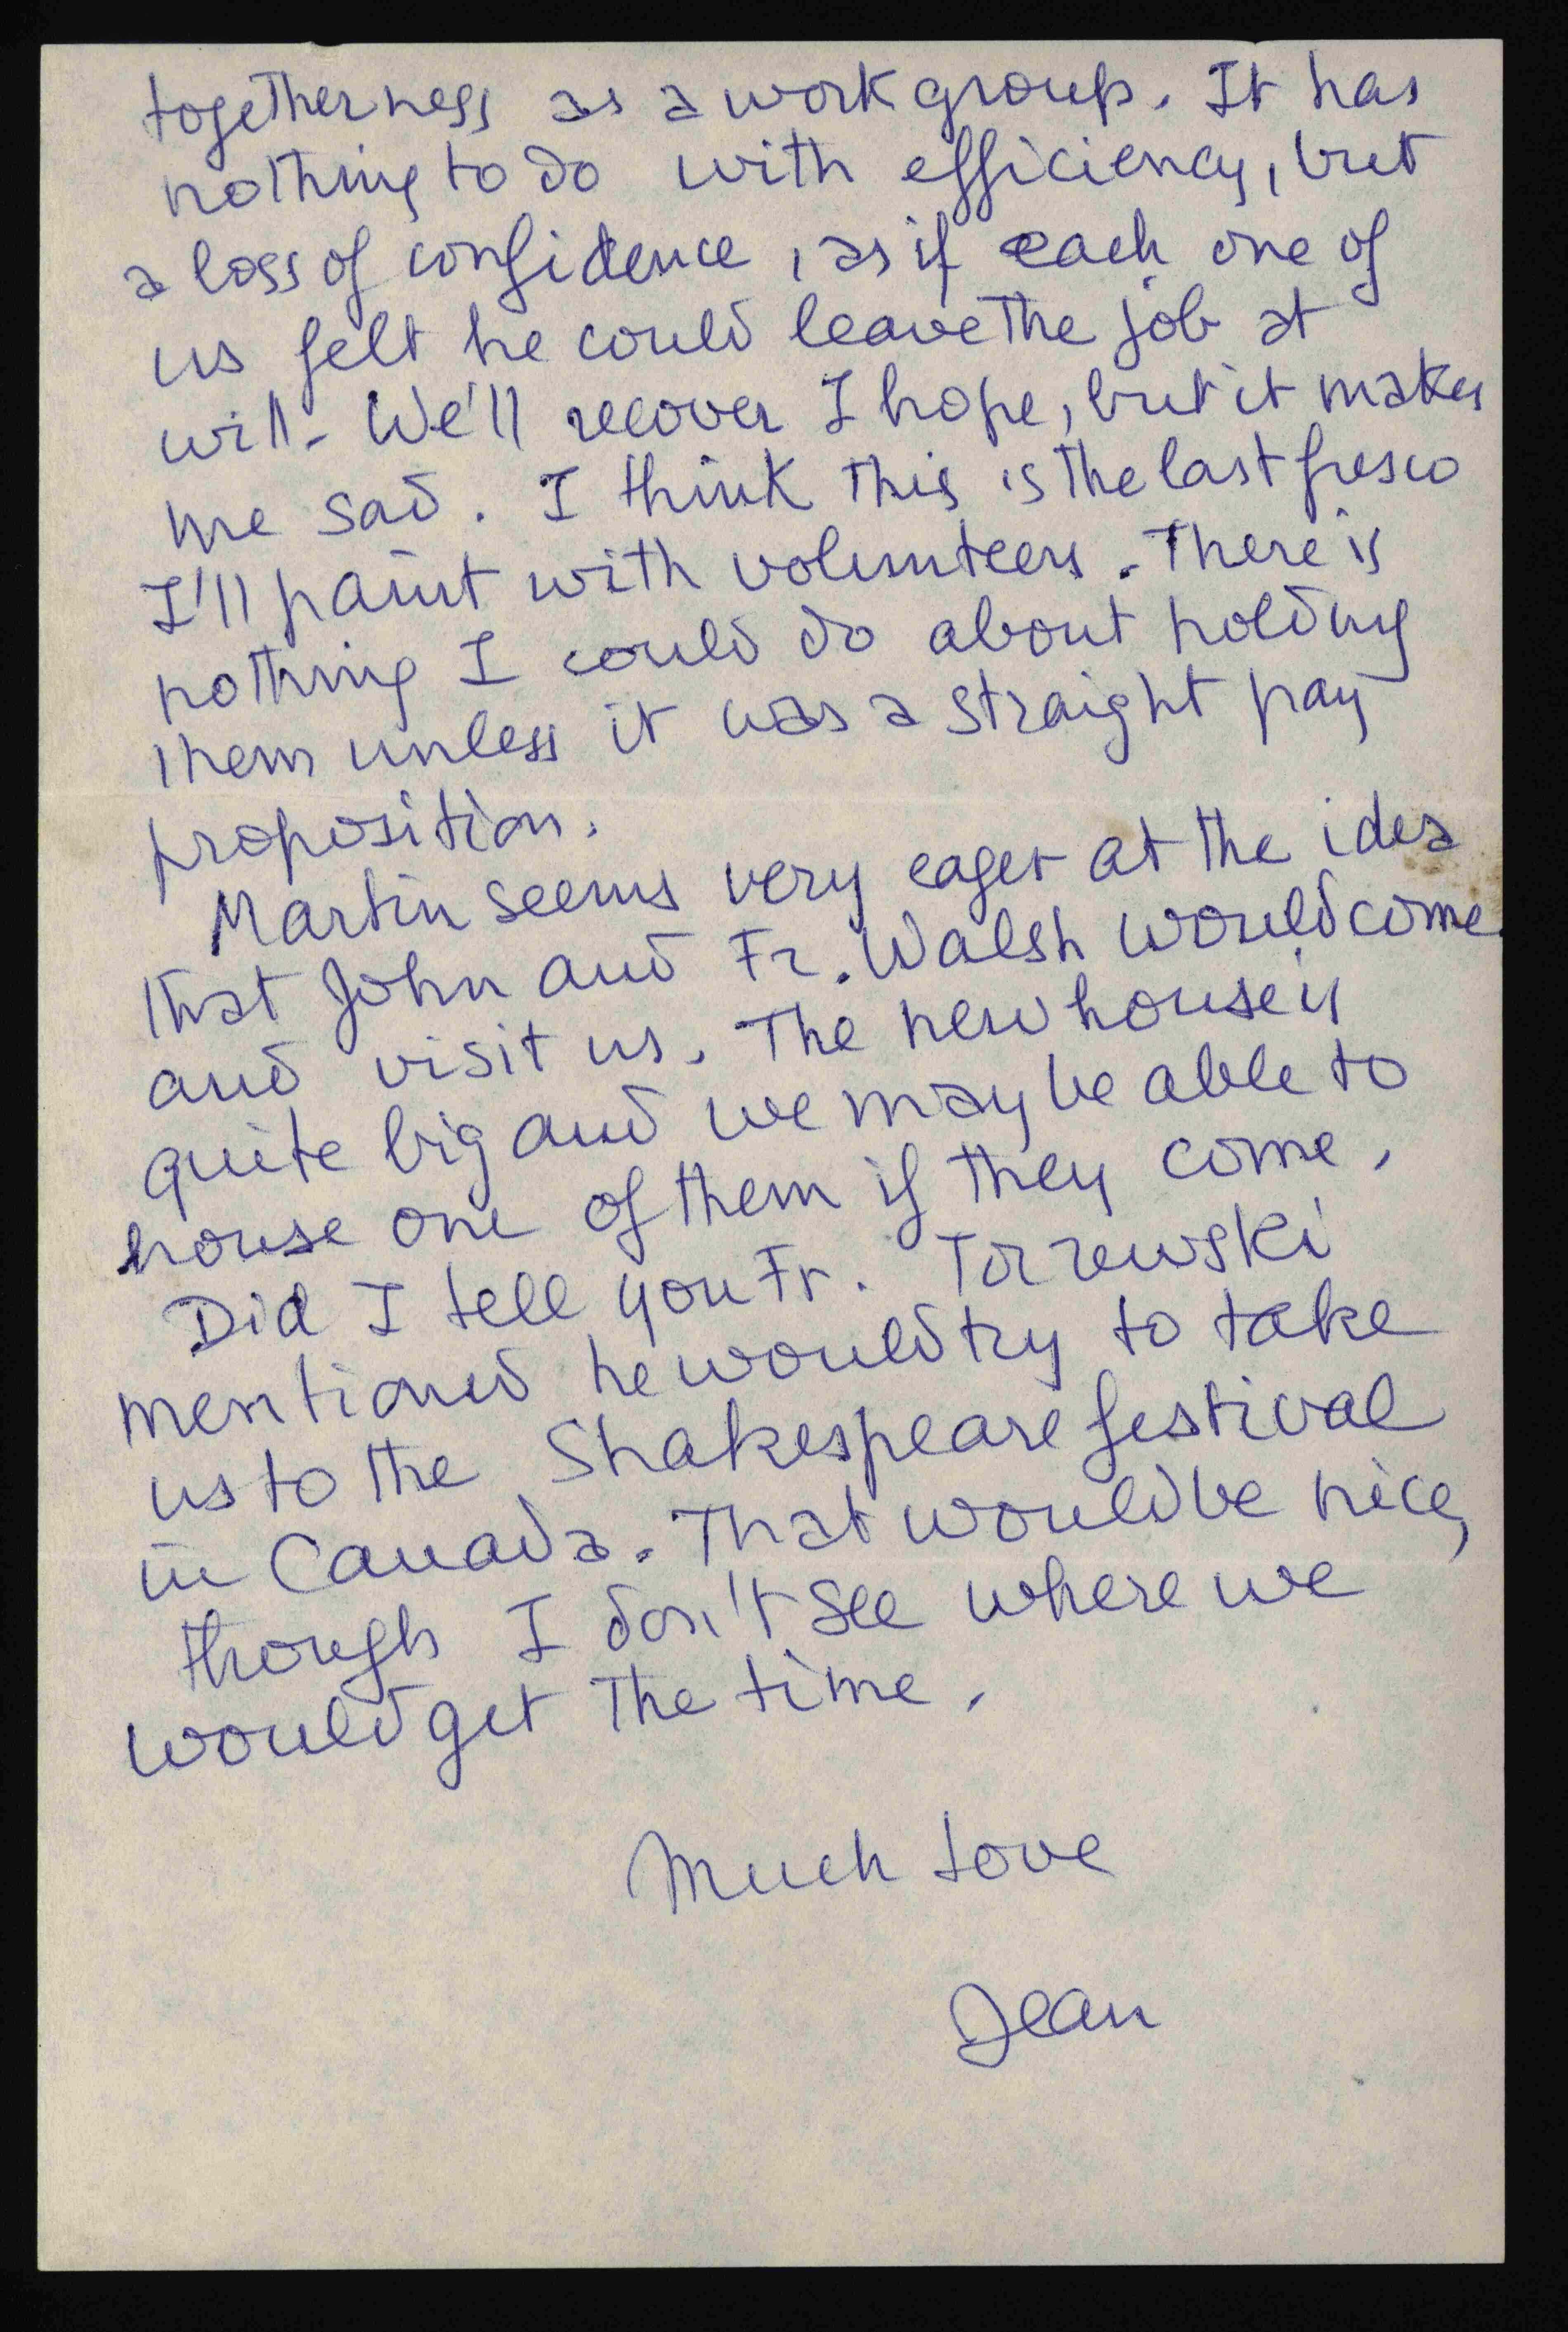 togetherness as a work group. It has
nothing to do with efficiency, but
a loss of confidence, as if each one of
us felt he could leave the job at
will. We'll recover I hope, but it makes
me sad. I think this is the last fresco
I'll paint with volunteers. There is
nothing I could do about holding
them unless it was a straight pay
proposition.
Martin seems very eager at the idea
that John and Fr. Walsh would come
and visit us. The new house is
quite big and we may be able to
house one of them if they come.
Did I tell you Fr. Torrewski
mentioned he would try to take
us to the Shakespeare festival
in Canada. That would be nice,
though I don't see where we
would get the time.
Much Love
Jean